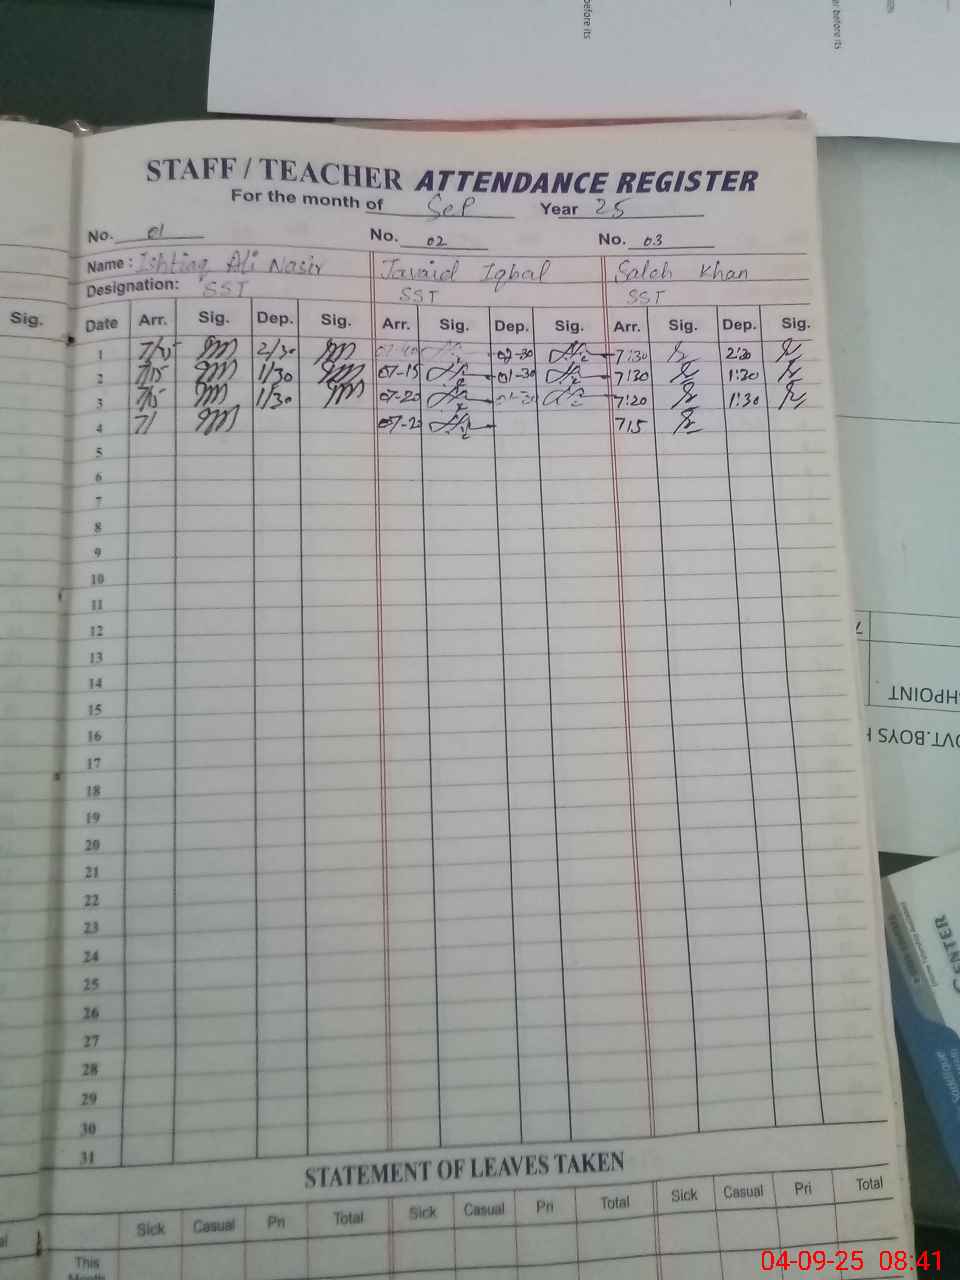 before its
or before its
STAFF / TEACHER ATTENDANCE REGISTER
For the month of Sep Year 25
No. 01 No. 02 No. 03
Name: Ishtiaq Ali Nasir Javaid Iqbal Saleh Khan
Designation: SST SST SST
Sig. Date Arr. Sig. Dep. Sig. Arr. Sig. Dep. Sig. Arr. Sig. Dep. Sig.
1 2/30 02-30 7:30 2:30
2 7/15 1/30 07-15 01-30 7:30 1:30
3 7/5 1/30 07-20 7:20 1:30
4 7/ 07-2 715
5
6
7
8
9
10
11
12
13
14
15
16
17
18
19
20
21
22
23
24
25
26
27
28
29
30
31
STATEMENT OF LEAVES TAKEN
Sick Casual Pri Total Sick Casual Pri Total Sick Casual Pri Total
This
Month
HPOINT
OVT.BOYS H
CENTER
04-09-25 08:41